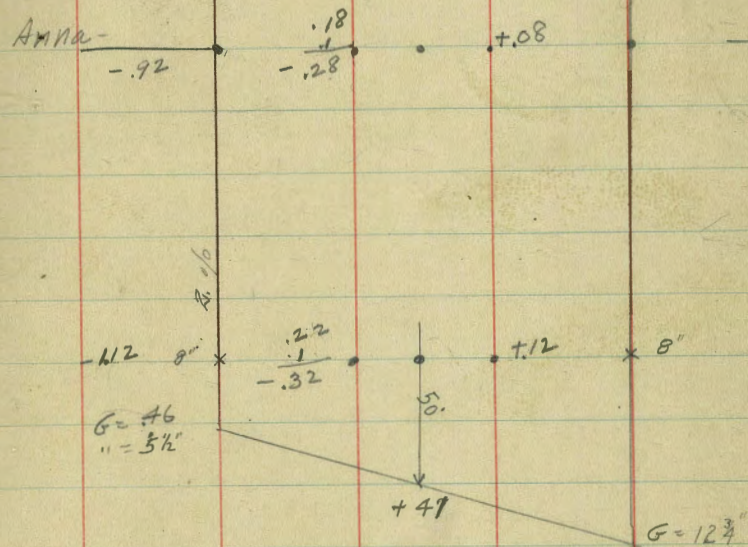 Anna-
-.92
.18
.1
-.28
+.08
-1.12
8"
.22
.1
-.32
+.12
8"
G = .46
" = 5½"
50'
+47
G = 12¾"